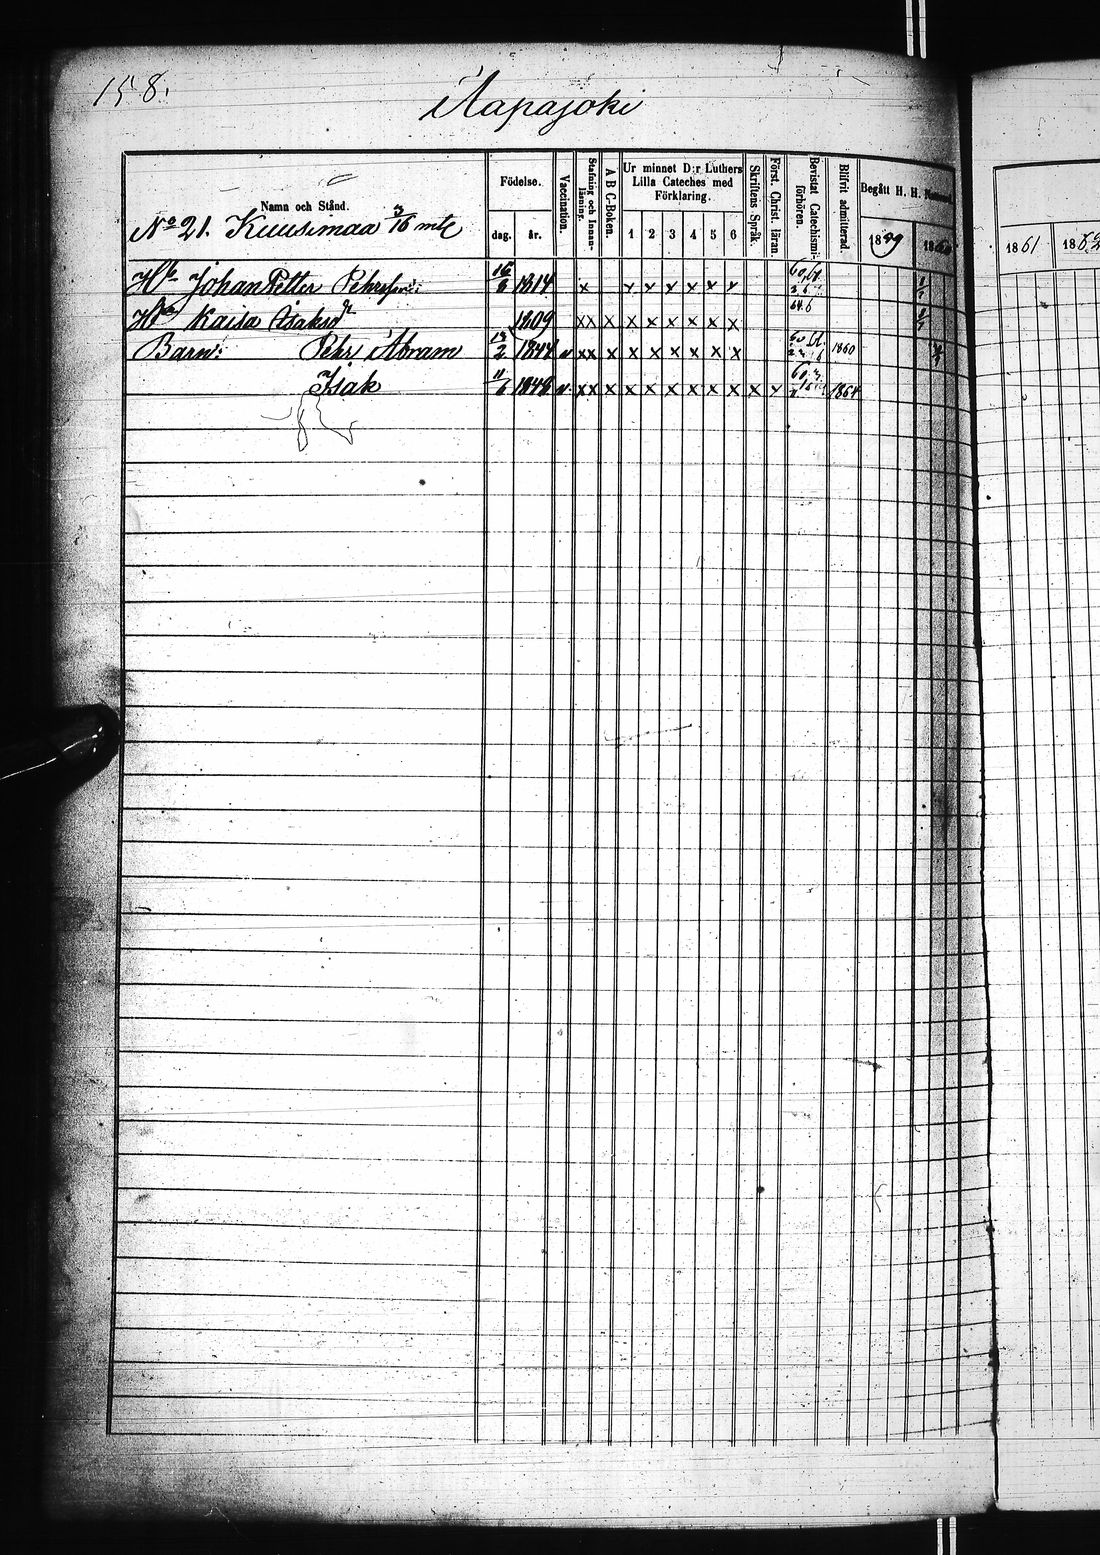 158.
Aapajoki
Namn och Stånd. Födelse. dag. år. Vaccination. Stafning och Innanläsning. A B C-Boken. Ur minnet D:r Luthers Lilla Cateches med Förklaring. 1 2 3 4 5 6 Skriftens Språk. Först. Christ. läran. Bevistat Catechismi-förhören. Blifvit admitterad. Begått H. H. 1859 1860 1861 1862
No 21. Kuusimaa 3/16 mtl
Hb Johan Petter Pehrsson: 16/6 1814 x x x x x x x 1/7
Hu Kaisa Isaksdr 1809 xx x x x x x x x 64.6 1/7
Barn: Pehr Abram 13/2 1844 v xx x x x x x x x 1860
Isak 11/6 1848 v xx x x x x x x x x x 1864